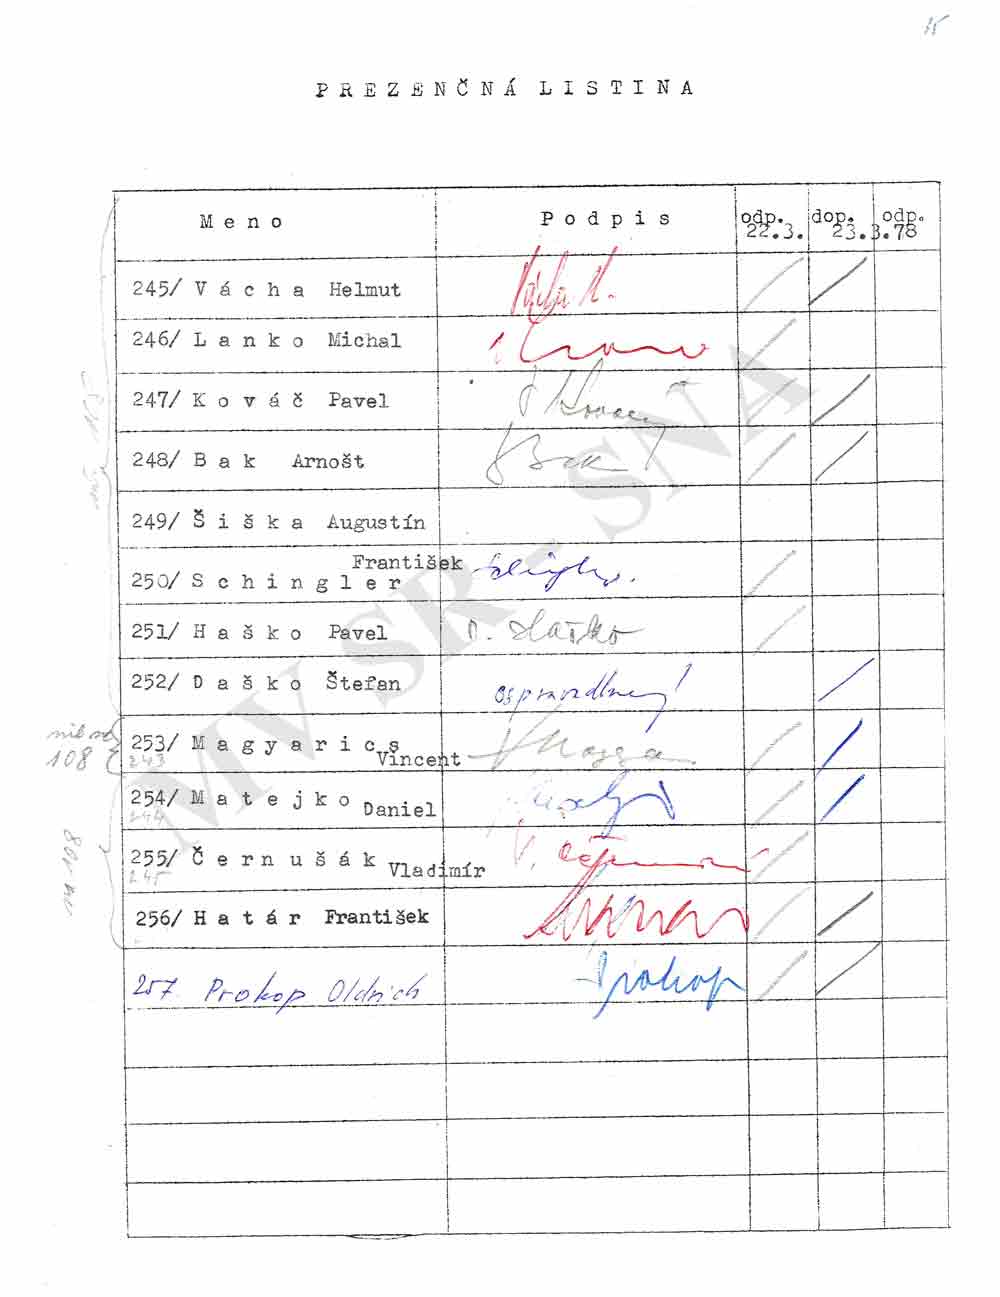 15
PREZENČNÁ LISTINA
Meno Podpis odp. dop. odp.
22.3. 23.3.78
245/ Vácha Helmut Vácha H.
246/ Lanko Michal
247/ Kováč Pavel
248/ Bak Arnošt Bak
249/ Šiška Augustín
František
250/ Schingler
251/ Haško Pavel P. Haško
252/ Daško Štefan ospravedlnený
108
253/ Magyarics
243 Vincent
254/ Matejko Daniel
244
255/ Černušák Vladimír
245
256/ Határ František
257 Prokop Oldrich Prokop
MV SR - SNA